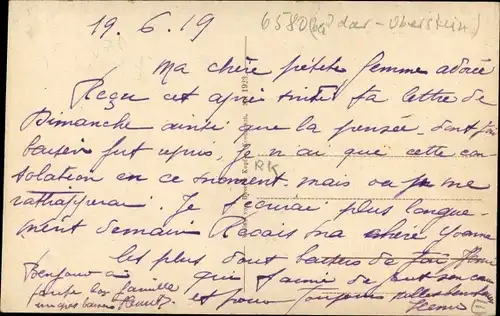 19.6.19
6580 Idar-Oberstein
Ma chère petite femme adorée
Reçu cet après ta lettre de
Dimanche ainsi que la pensée, dont ton
baiser fut repris, je n'ai que cette con
solation en ce moment mais ou je me
rattraperai. Je t'ecrirai plus longue-
ment demain Recois ma chère Yvonne
les plus doux baisers de ton Henri
qui t'aime de tout son cœur
et pour toujours
Henri
RK
Bonjour à
toute la famille